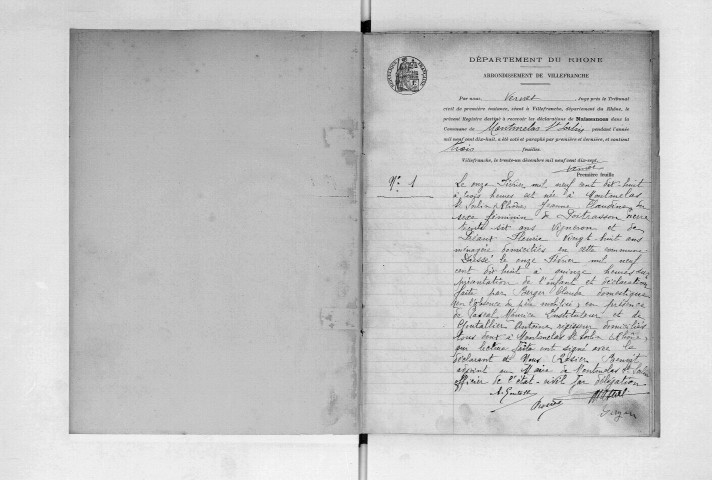 DÉPARTEMENT DU RHONE
ARRONDISSEMENT DE VILLEFRANCHE
Par nous Vernet, Juge près le Tribunal
civil de première instance, séant à Villefranche, département du Rhône, le
présent Registre destiné à recevoir les déclarations de Naissances dans la
Commune de Montmelas St Sorlin, pendant l'année
mil neuf cent dix-huit, a été coté et paraphé par première et dernière, et contient
trois feuilles.
Villefranche, le trente-un décembre mil neuf cent dix-sept.
Première feuille
No 1
Le onze Février mil neuf cent dix-huit
à trois heures est née à Montmelas
St Sorlin (Rhône) Jeanne Claudine du
sexe féminin de
trente six ans vigneron et de
Fleurie vingt-huit ans
ménagère domiciliés en cette commune
Dressé le onze Février mil neuf
cent dix huit à quinze heures sur
présentation de l'enfant et déclaration
faite par Berger Claude domestique
en l'absence du père mobilisé, en présence
de Pascal Maurice Instituteur et de
Antoine domiciliés
tous deux à Montmelas St Sorlin (Rhône)
qui lecture faite ont signé avec le
déclarant et Nous, Rosier Benoît
adjoint au Maire de Montmelas St Sorlin
officier de l'état-civil par délégation